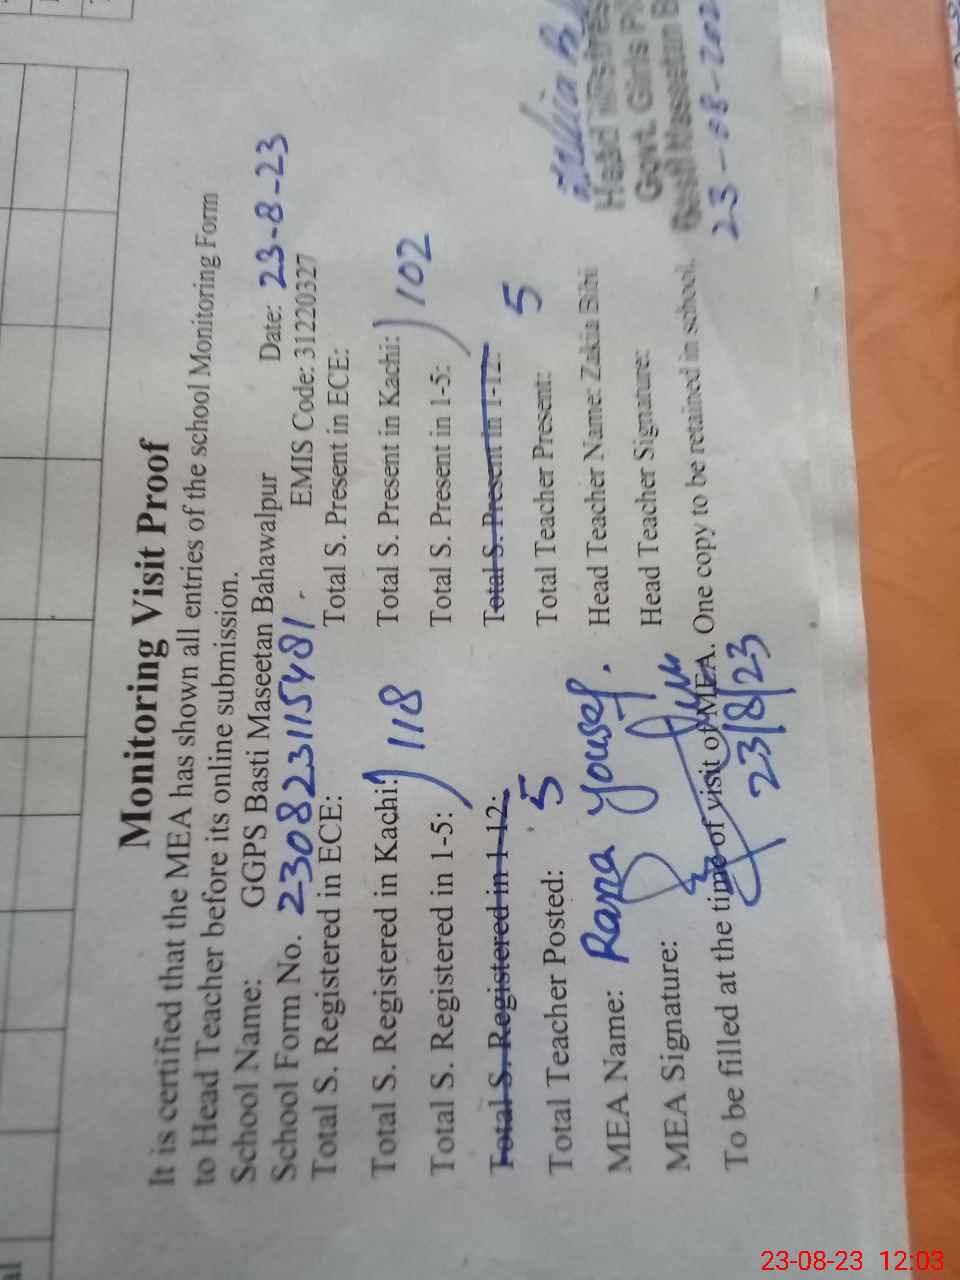 Monitoring Visit Proof
It is certified that the MEA has shown all entries of the school Monitoring Form
to Head Teacher before its online submission.
School Name: GGPS Basti Maseetan Bahawalpur Date: 23-8-23
School Form No. 230823115481 EMIS Code: 31220327
Total S. Registered in ECE: Total S. Present in ECE:
Total S. Registered in Kachi: Total S. Present in Kachi:
118 102
Total S. Registered in 1-5: Total S. Present in 1-5:
Total S. Registered in 1-12: Total S. Present in 1-12:
Total Teacher Posted: 5 Total Teacher Present: 5
MEA Name: Rana Yousef. Head Teacher Name: Zakia Bibi
MEA Signature: Head Teacher Signature:
To be filled at the time of visit of MEA. One copy to be retained in school.
23/8/23
Head
Govt. Girls
Basti Maseetan
23-08-202
al
23-08-23 12:03